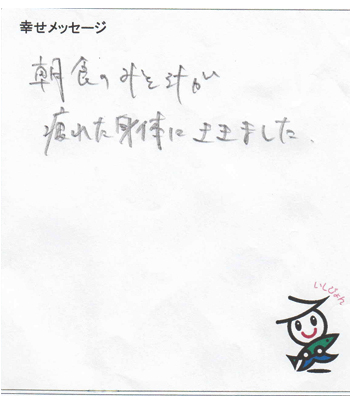 幸せメッセージ
朝食のみそ汁が
疲れた身体にキキました。
いしぴょん